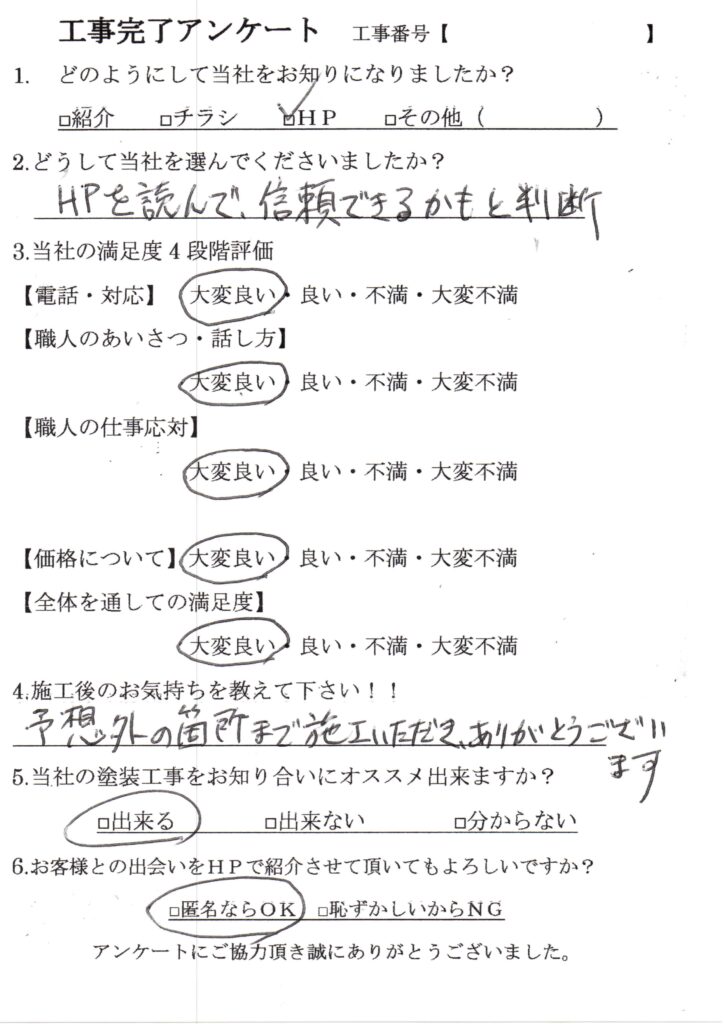 工事完了アンケート 工事番号【 】
1. どのようにして当社をお知りになりましたか？
□紹介 □チラシ ☑HP □その他（ ）
2.どうして当社を選んでくださいましたか？
HPを読んで、信頼できるかもと判断
3.当社の満足度4段階評価
【電話・対応】 大変良い・良い・不満・大変不満
【職人のあいさつ・話し方】
大変良い・良い・不満・大変不満
【職人の仕事応対】
大変良い・良い・不満・大変不満
【価格について】大変良い・良い・不満・大変不満
【全体を通しての満足度】
大変良い・良い・不満・大変不満
4.施工後のお気持ちを教えて下さい！！
予想外の箇所まで施工いただき、ありがとうござい
ます
5.当社の塗装工事をお知り合いにオススメ出来ますか？
□出来る □出来ない □分からない
6.お客様との出会いをHPで紹介させて頂いてもよろしいですか？
□匿名ならOK □恥ずかしいからNG
アンケートにご協力頂き誠にありがとうございました。